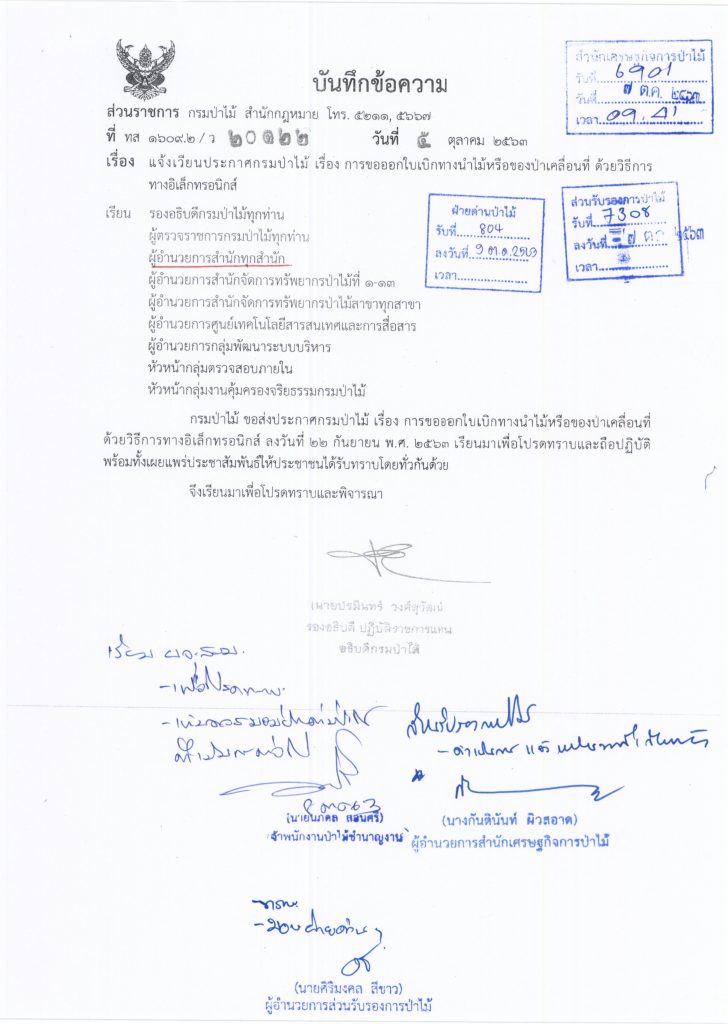 บันทึกข้อความ
สำนักเศรษฐกิจการป่าไม้
รับที่ 6901
วันที่ ๗ ต.ค. ๒๕๖๓
เวลา 09.41
ส่วนราชการ กรมป่าไม้ สำนักกฎหมาย โทร. ๕๒๑๑, ๕๖๖๗
ที่ ทส ๑๖๐๙.๒ / ว ๒๐๑๒๒ วันที่ ๕ ตุลาคม ๒๕๖๓
เรื่อง แจ้งเวียนประกาศกรมป่าไม้ เรื่อง การขอออกใบเบิกทางนำไม้หรือของป่าเคลื่อนที่ ด้วยวิธีการ
ทางอิเล็กทรอนิกส์
ฝ่ายด่านป่าไม้
รับที่ 804
ลงวันที่ 9 ต.ค. 2563
เวลา
ส่วนรับรองการป่าไม้
รับที่ 7308
ลงวันที่ ๗ ต.ค. ๒๕๖๓
เวลา
เรียน รองอธิบดีกรมป่าไม้ทุกท่าน
ผู้ตรวจราชการกรมป่าไม้ทุกท่าน
ผู้อำนวยการสำนักทุกสำนัก
ผู้อำนวยการสำนักจัดการทรัพยากรป่าไม้ที่ ๑-๑๓
ผู้อำนวยการสำนักจัดการทรัพยากรป่าไม้สาขาทุกสาขา
ผู้อำนวยการศูนย์เทคโนโลยีสารสนเทศและการสื่อสาร
ผู้อำนวยการกลุ่มพัฒนาระบบบริหาร
หัวหน้ากลุ่มตรวจสอบภายใน
หัวหน้ากลุ่มงานคุ้มครองจริยธรรมกรมป่าไม้
กรมป่าไม้ ขอส่งประกาศกรมป่าไม้ เรื่อง การขอออกใบเบิกทางนำไม้หรือของป่าเคลื่อนที่
ด้วยวิธีการทางอิเล็กทรอนิกส์ ลงวันที่ ๒๒ กันยายน พ.ศ. ๒๕๖๓ เรียนมาเพื่อโปรดทราบและถือปฏิบัติ
พร้อมทั้งเผยแพร่ประชาสัมพันธ์ให้ประชาชนได้รับทราบโดยทั่วกันด้วย
จึงเรียนมาเพื่อโปรดทราบและพิจารณา
(นายปรมินทร์ วงศ์สุวัฒน์
รองอธิบดี ปฏิบัติราชการแทน
อธิบดีกรมป่าไม้
เรียน ผอ.สศม.
- เพื่อโปรดทราบ
ส่วนรับรองการป่าไม้
(นายนภดล สอนศรี)
เจ้าพนักงานป่าไม้ชำนาญงาน
(นางกันตินันท์ ผิวสอาด)
ผู้อำนวยการสำนักเศรษฐกิจการป่าไม้
- มอบฝ่ายด่านฯ
(นายศิริมงคล สีขาว)
ผู้อำนวยการส่วนรับรองการป่าไม้